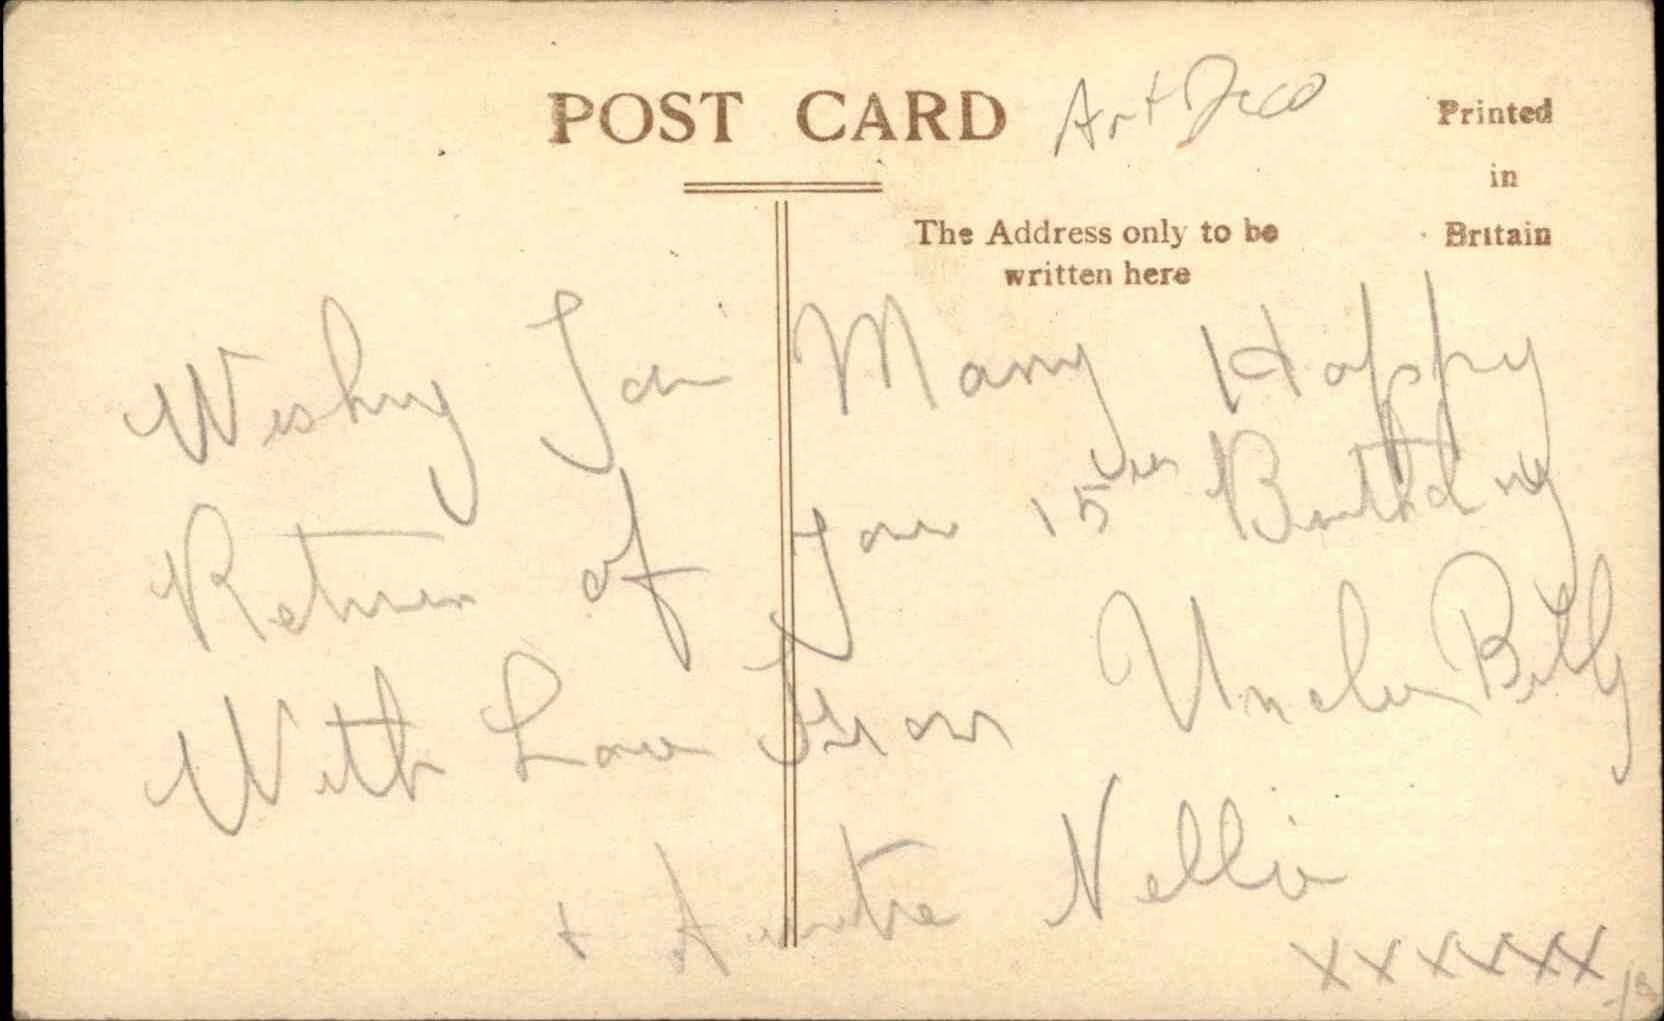 POST CARD
Art Deco
Printed
in
Britain
The Address only to be
written here
Wishing You Many Happy
Return of your 15th Birthday
With Love From Uncle Billy
+ Auntie Nellie
xxxxxx